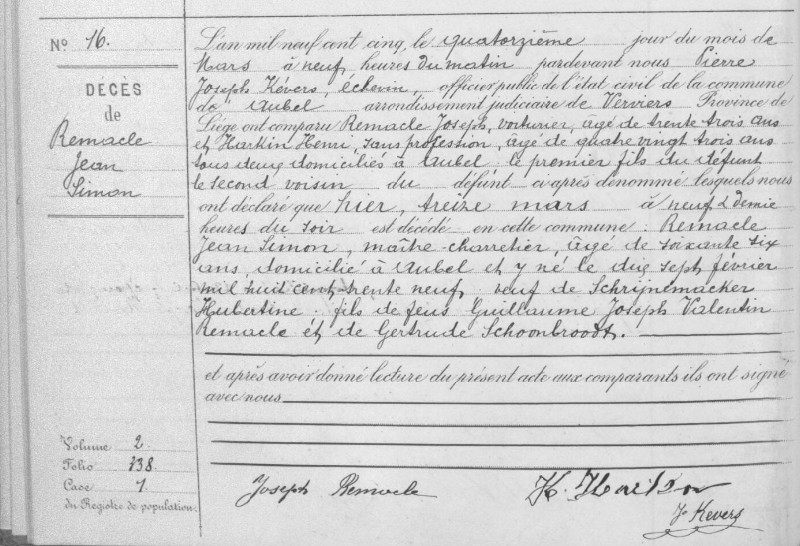 No 16.
DÉCÈS
de
Remacle
Jean
Simon
L'an mil neuf cent cinq, le quatorzième jour du mois de
Mars à neuf heures du matin pardevant nous Pierre
Joseph Kévers, échevin, officier public de l'état civil de la commune
de Aubel arrondissement judiciaire de Verviers Province de
Liége ont comparu Remacle Joseph, voiturier, âgé de trente trois ans
et Harkin Henri, sans profession, âgé de quatre vingt trois ans
tous deux domiciliés à Aubel le premier fils du défunt
le second voisin du défunt ci après dénommé lesquels nous
ont déclaré que hier, treize mars à neuf & demie
heures du soir est décédé en cette commune : Remacle
Jean Simon, maître-charretier, âgé de soixante six
ans, domicilié à Aubel et y né le dix sept février
mil huit cent trente neuf, veuf de Schrijnemacker
Hubertine. fils de feus Guillaume Joseph Valentin
Remacle et de Gertrude Schoonbroodt.
et après avoir donné lecture du présent acte aux comparants ils ont signé
avec nous
Volume 2.
Folio 138.
Case 1
du Registre de population.
Joseph Remacle H. Harkin
J. Kevers